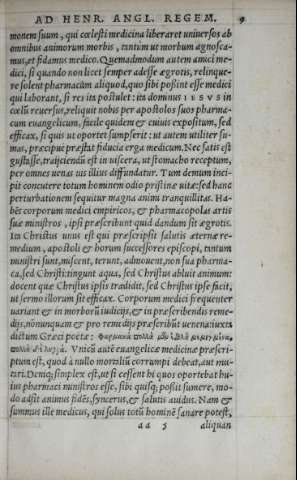 AD HENR. ANGL. REGEM. 9
monem suum, qui cœlesti medicina liberaret uniuersos ab
omnibus animorum morbis, tantùm ut morbum agnosca-
mus, et fidamus medico. Quemadmodum autem amici me-
dici, si quando non licet semper adesse ægrotis, relinque-
re solent pharmacum aliquod, quo sibi poßint esse medici
qui laborant, si res ita postulet: ita dominus IESVS in
cœlũ reuersus, reliquit nobis per apostolos suos pharma-
cum euangelicum, facile quidem & cuiuis expositum, sed
efficax, si quis ut oportet sumpserit: ut autem utiliter su-
mas, præcipue præstat fiducia erga medicum. Nec satis est
gustasse, traijciendũ est in uiscera, ut stomacho receptum,
per omnes uenas uis illius diffundatur. Tum demum inci-
pit concutere totum hominem odio pristinæ uitæ: sed hanc
perturbationem sequitur magna animi tranquillitas. Ha-
bẽt corporum medici empiricos, & pharmacopolas artis
suæ ministros, ipsi præscribunt quid dandum sit ægrotis.
In Christus unus est qui præscripsit salutis æternæ re-
medium, apostoli & horum successores episcopi, tantum
ministri sunt, miscent, terunt, admouent, non sua pharma-
ca, sed Christi: tingunt aqua, sed Christus abluit animum:
docent quæ Christus ipsis tradidit, sed Christus ipse facit,
ut sermo illorum sit efficax. Corporum medici frequenter
uariant & in morborũ iudicijs, & in præscribendis reme-
dijs, nonunquam & pro remedijs præscribũt uenena, iuxta
dictum Græci poetæ: φαρμακα πολλὰ μὲν ἐσθλὰ μεμιγμένα,
πολλὰ δὲ λυγρά. Vnicũ autẽ euangelicæ medicinæ præscri-
ptum est, quod à nullo mortaliũ corrumpi debeat, aut mu-
tari. Deniq; simplex est, ut si cessent hi quos oportebat hu-
ius pharmaci ministros esse, sibi quisq; poßit sumere, mo-
do adsit animus fidẽs, syncerus, & salutis auidus. Nam &
summus ille medicus, qui solus totũ hominẽ sanare potest,
aa 5 aliquan